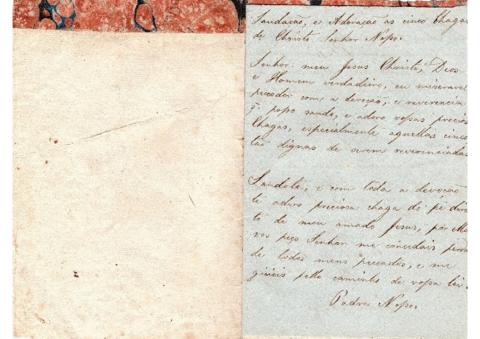 Saudacão, e Adoracão as cinco Chagas
de Christo Senhor Nosso.
Senhor meu Jesus Christo, Deos
e Homem verdadeiro, eu miseravel
peccador com a devoção, e reverencia
q̃ posso saudo, e adoro vossas preciosas
Chagas, especialmente aquellas cinco
tão dignas de serem reverenciadas
Saudote, e com toda a devoção
te adoro preciosa chaga do pé direi
to de meu amado Jesus, por
vos peço Senhor me concedais perdão
de todos meus peccados, e me
guieis pello caminho de vossa lei.
Padre Nosso.